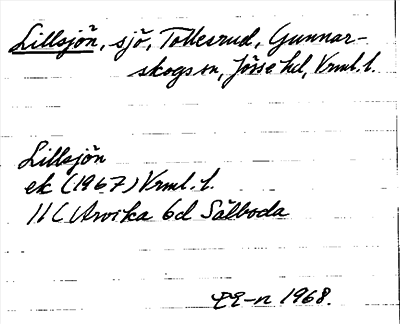 Lillsjön, sjö, Tottesrud, Gunnar-
skogs sn, Jösse hd, Vrml. l.
Lillsjön
ek (1967) Vrml. l.
11C Arvika 6d Sälboda
1968.